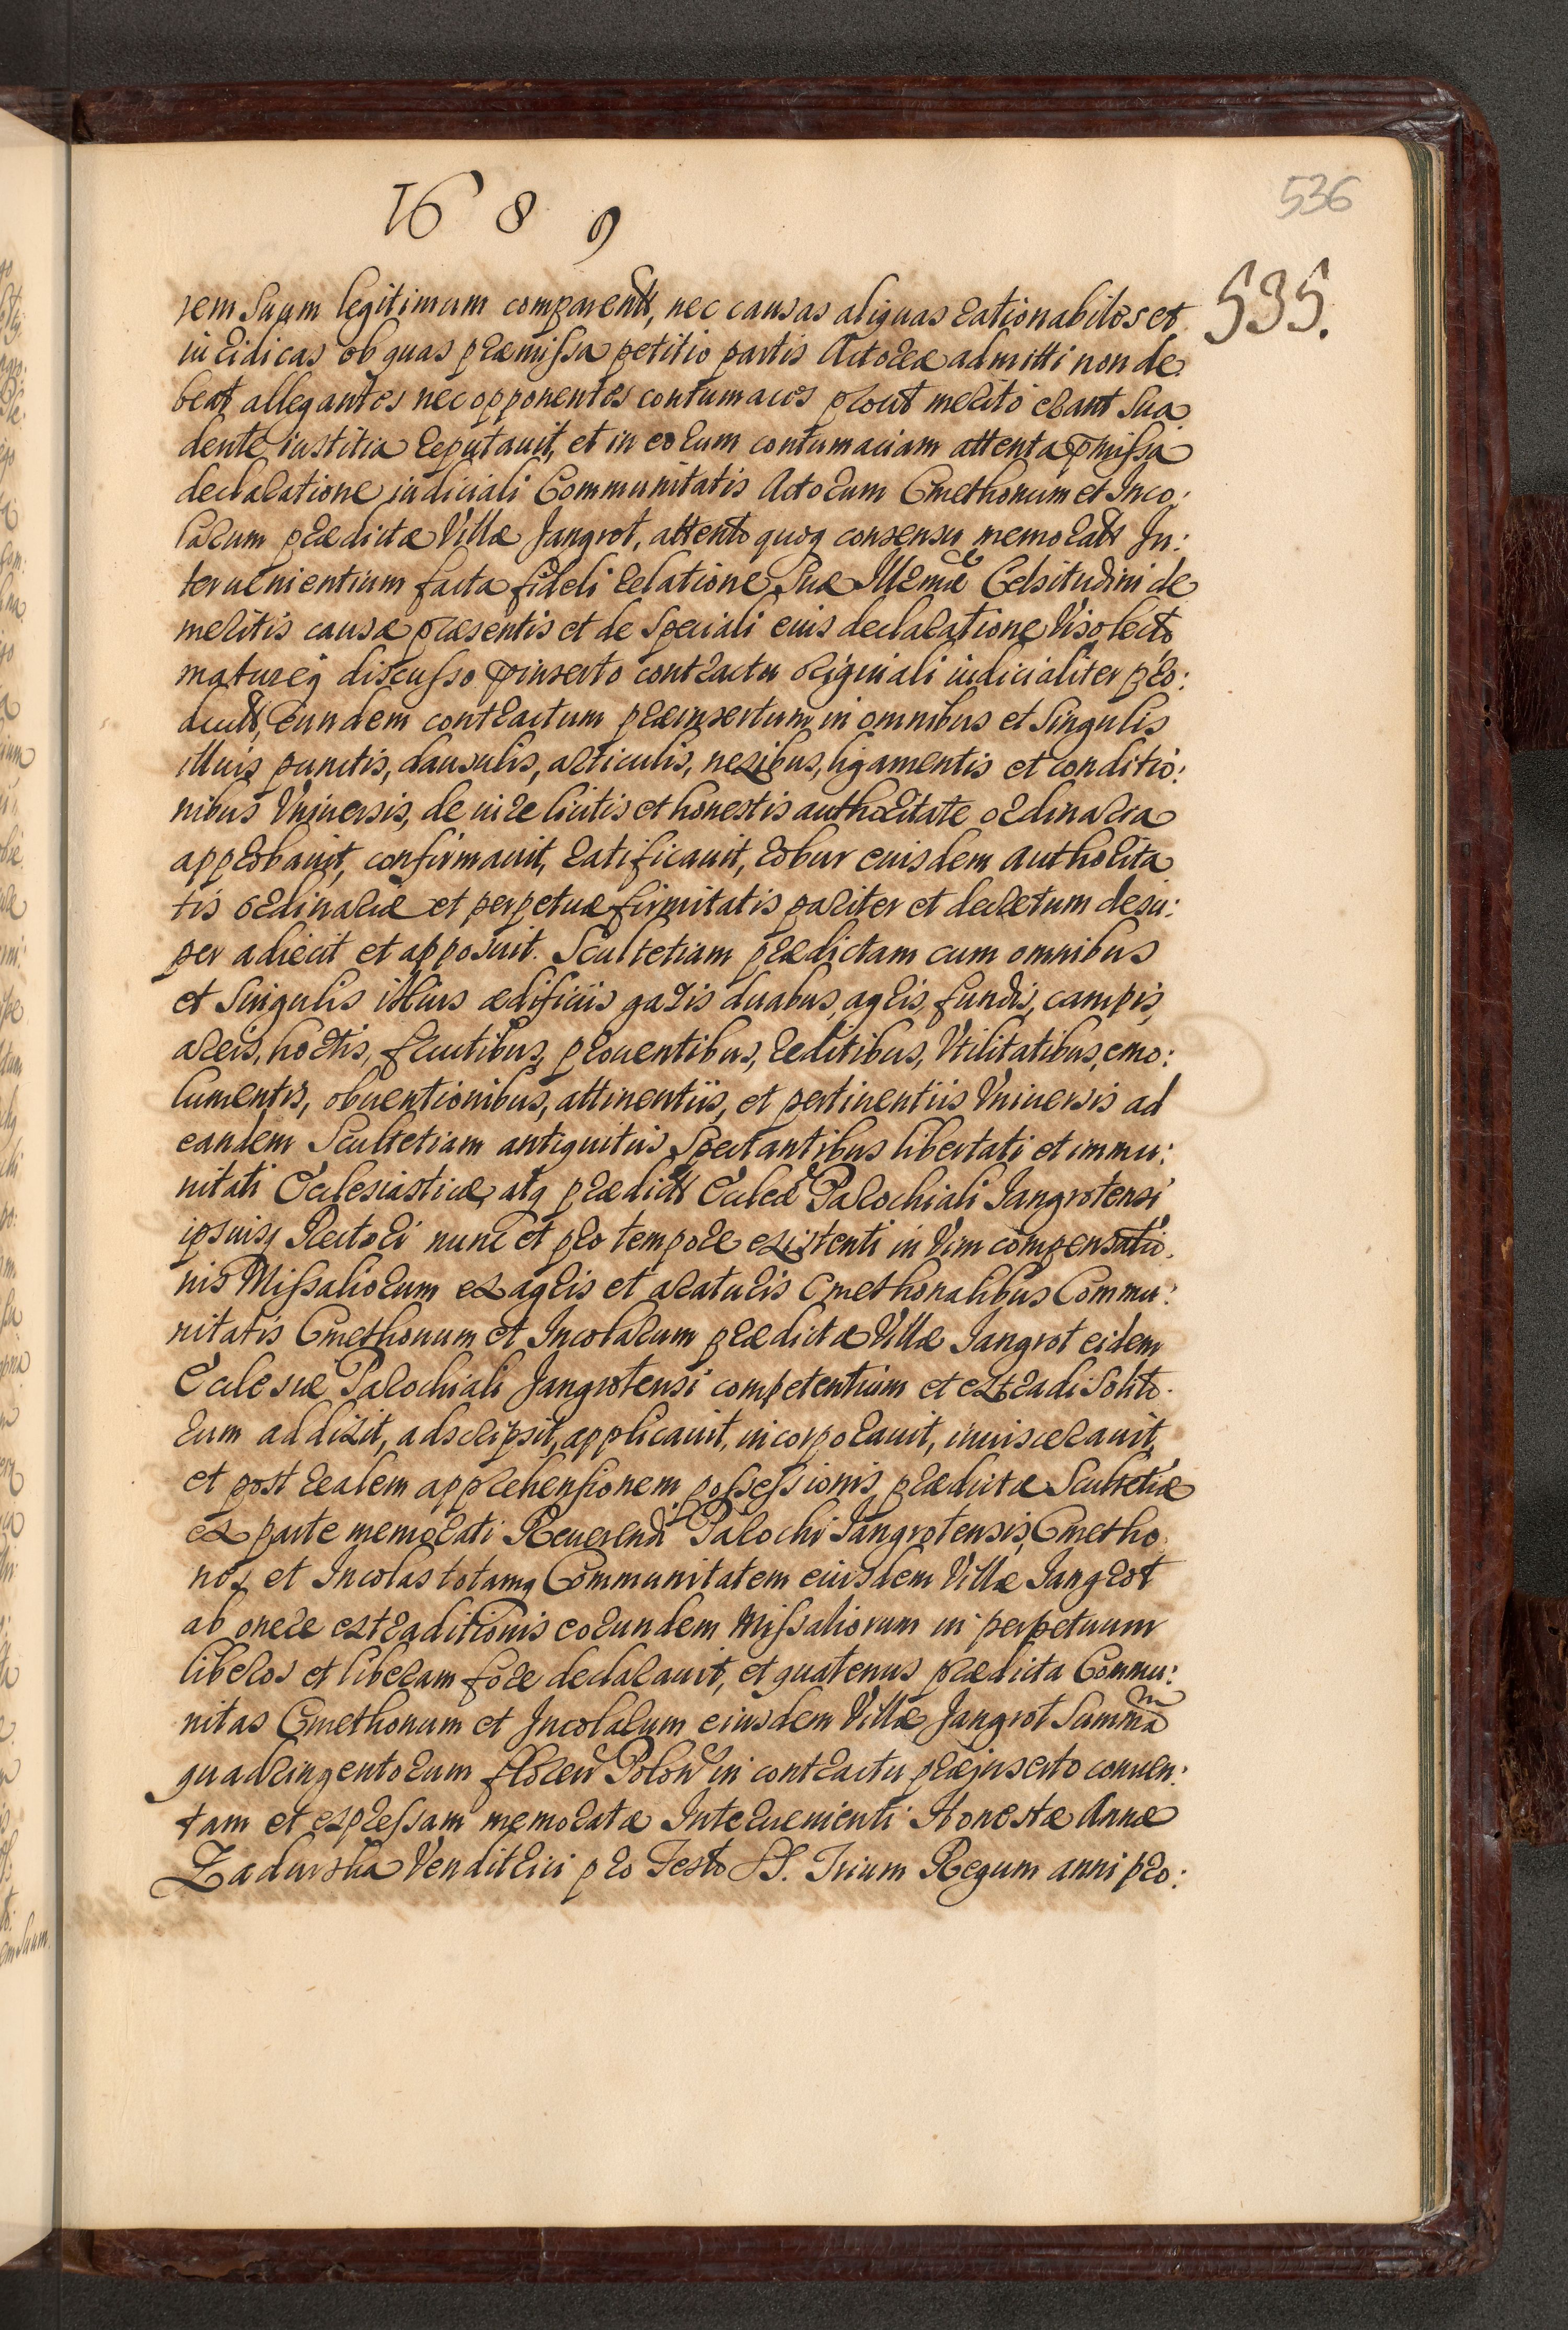 1689
536
535.
rem suum legitimum comparentt, nec causas aliquas rationabiles et
iuridicas ob quas præmissa petitio partis Actoreæ admitti non de
beat allegantes nec opponentes contumaces prout merito erant sua
dente iustitia reputauit, et in eorum contumaciam attenta pmissa
declaratione iudiciali Communitatis Actorum Cmethonum et Inco:
larum prædictæ Villæ Jangrot, attento quoq consensu memoratt In:
teruenientium facta fideli relatione suæ Illmæ Celsitudini de
meritis causæ præsentis et de speciali eius declaratione viso lecto
matureq discusso pinserto contractu originali iudicialiter pro:
ductt, eundem contractum præinsertum in omnibus et singulis
illius punctis, clausulis, articulis, nexibus, ligamentis et conditio:
nibus Vniuersis, de iure licitis et honestis authoritate ordinaria
approbauit, confirmauit, ratificauit, robur eiusdem authorita
tis ordinariæ et perpetuæ firmitatis pariter et decretum desu:
per adiecit et apposuit. Scultetiam prædictam cum omnibus
et singulis illius ædificiis gazis duabus, agris, fundis, campis,
areis, hortis, fructibus, prouentibus, reditibus, Vtilitatibus, emo:
lumentis, obuentionibus, attinentiis, et pertinentiis Vniuersis ad
eandem Scultetiam antiquitus spectantibus libertati et immu:
nitati Ecclesiasticæ, atq prædictt Eccleæ Parochiali Jangrotensi
ipsiusq Rectori nunc et pro tempore existenti in vim compensatio:
nis Missaliorum ex agris et araturis Cmethonalibus Commu:
nitatis Cmethonum et Incolarum prædictæ Villæ Jangrot eidem
Ecclesiæ Parochiali Jangrotensi competentium et extradi solito:
rum addixit, adscripsit, applicauit, incorporauit, inuiscerauit,
et post realem apprehensionem possessionis prædictæ Scultetiæ
ex parte memorati Reuerendi Parochi Jangrotensis, Cmetho
nes et Incolas totamq Communitatem eiusdem Villæ Jangrot
ab onere extraditionis eorundem Missaliorum in perpetuum
liberos et liberam fore declarauit, et quatenus prædicta Commu:
nitas Cmethonum et Incolarum eiusdem Villæ Jangrot summam
quadringentorum floren Polon in contractu præinserto conuen:
tam et expressam memoratæ Interuenienti Honestæ Annæ
Zadurska Venditrici pro Festo SS. Trium Regum anni pro: